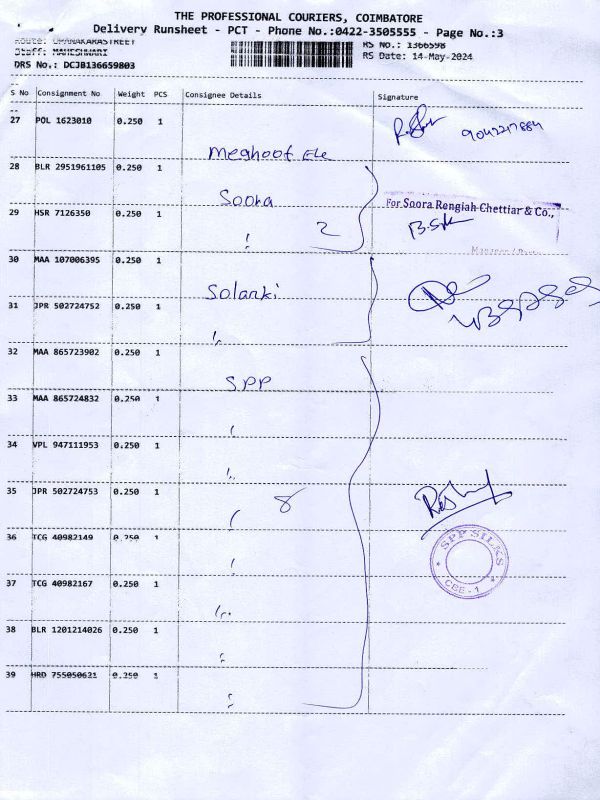 THE PROFESSIONAL COURIERS, COIMBATORE
Delivery Runsheet - PCT - Phone No.:0422-3505555 - Page No.:3
Staff: MAHESHWARI
RS No.: 1366598
DRS No.: DCJB136659803
RS Date: 14-May-2024
S No Consignment No Weight PCS Consignee Details Signature
27 POL 1623010 0.250 1
9042217884
Meghoot Ele
28 BLR 2951961105 0.250 1
Soora
For Soora Rengiah Chettiar & Co.,
29 HSR 7126350 0.250 1
2
30 MAA 107006395 0.250 1
Solanki
31 JPR 502724752 0.250 1
32 MAA 865723902 0.250 1
SPP
33 MAA 865724832 0.250 1
34 VPL 947111953 0.250 1
35 JPR 502724753 0.250 1
8
36 TCG 40982149 0.250 1
SPP SILKS
CBE - 1
37 TCG 40982167 0.250 1
38 BLR 1201214026 0.250 1
39 HRD 755050621 0.250 1